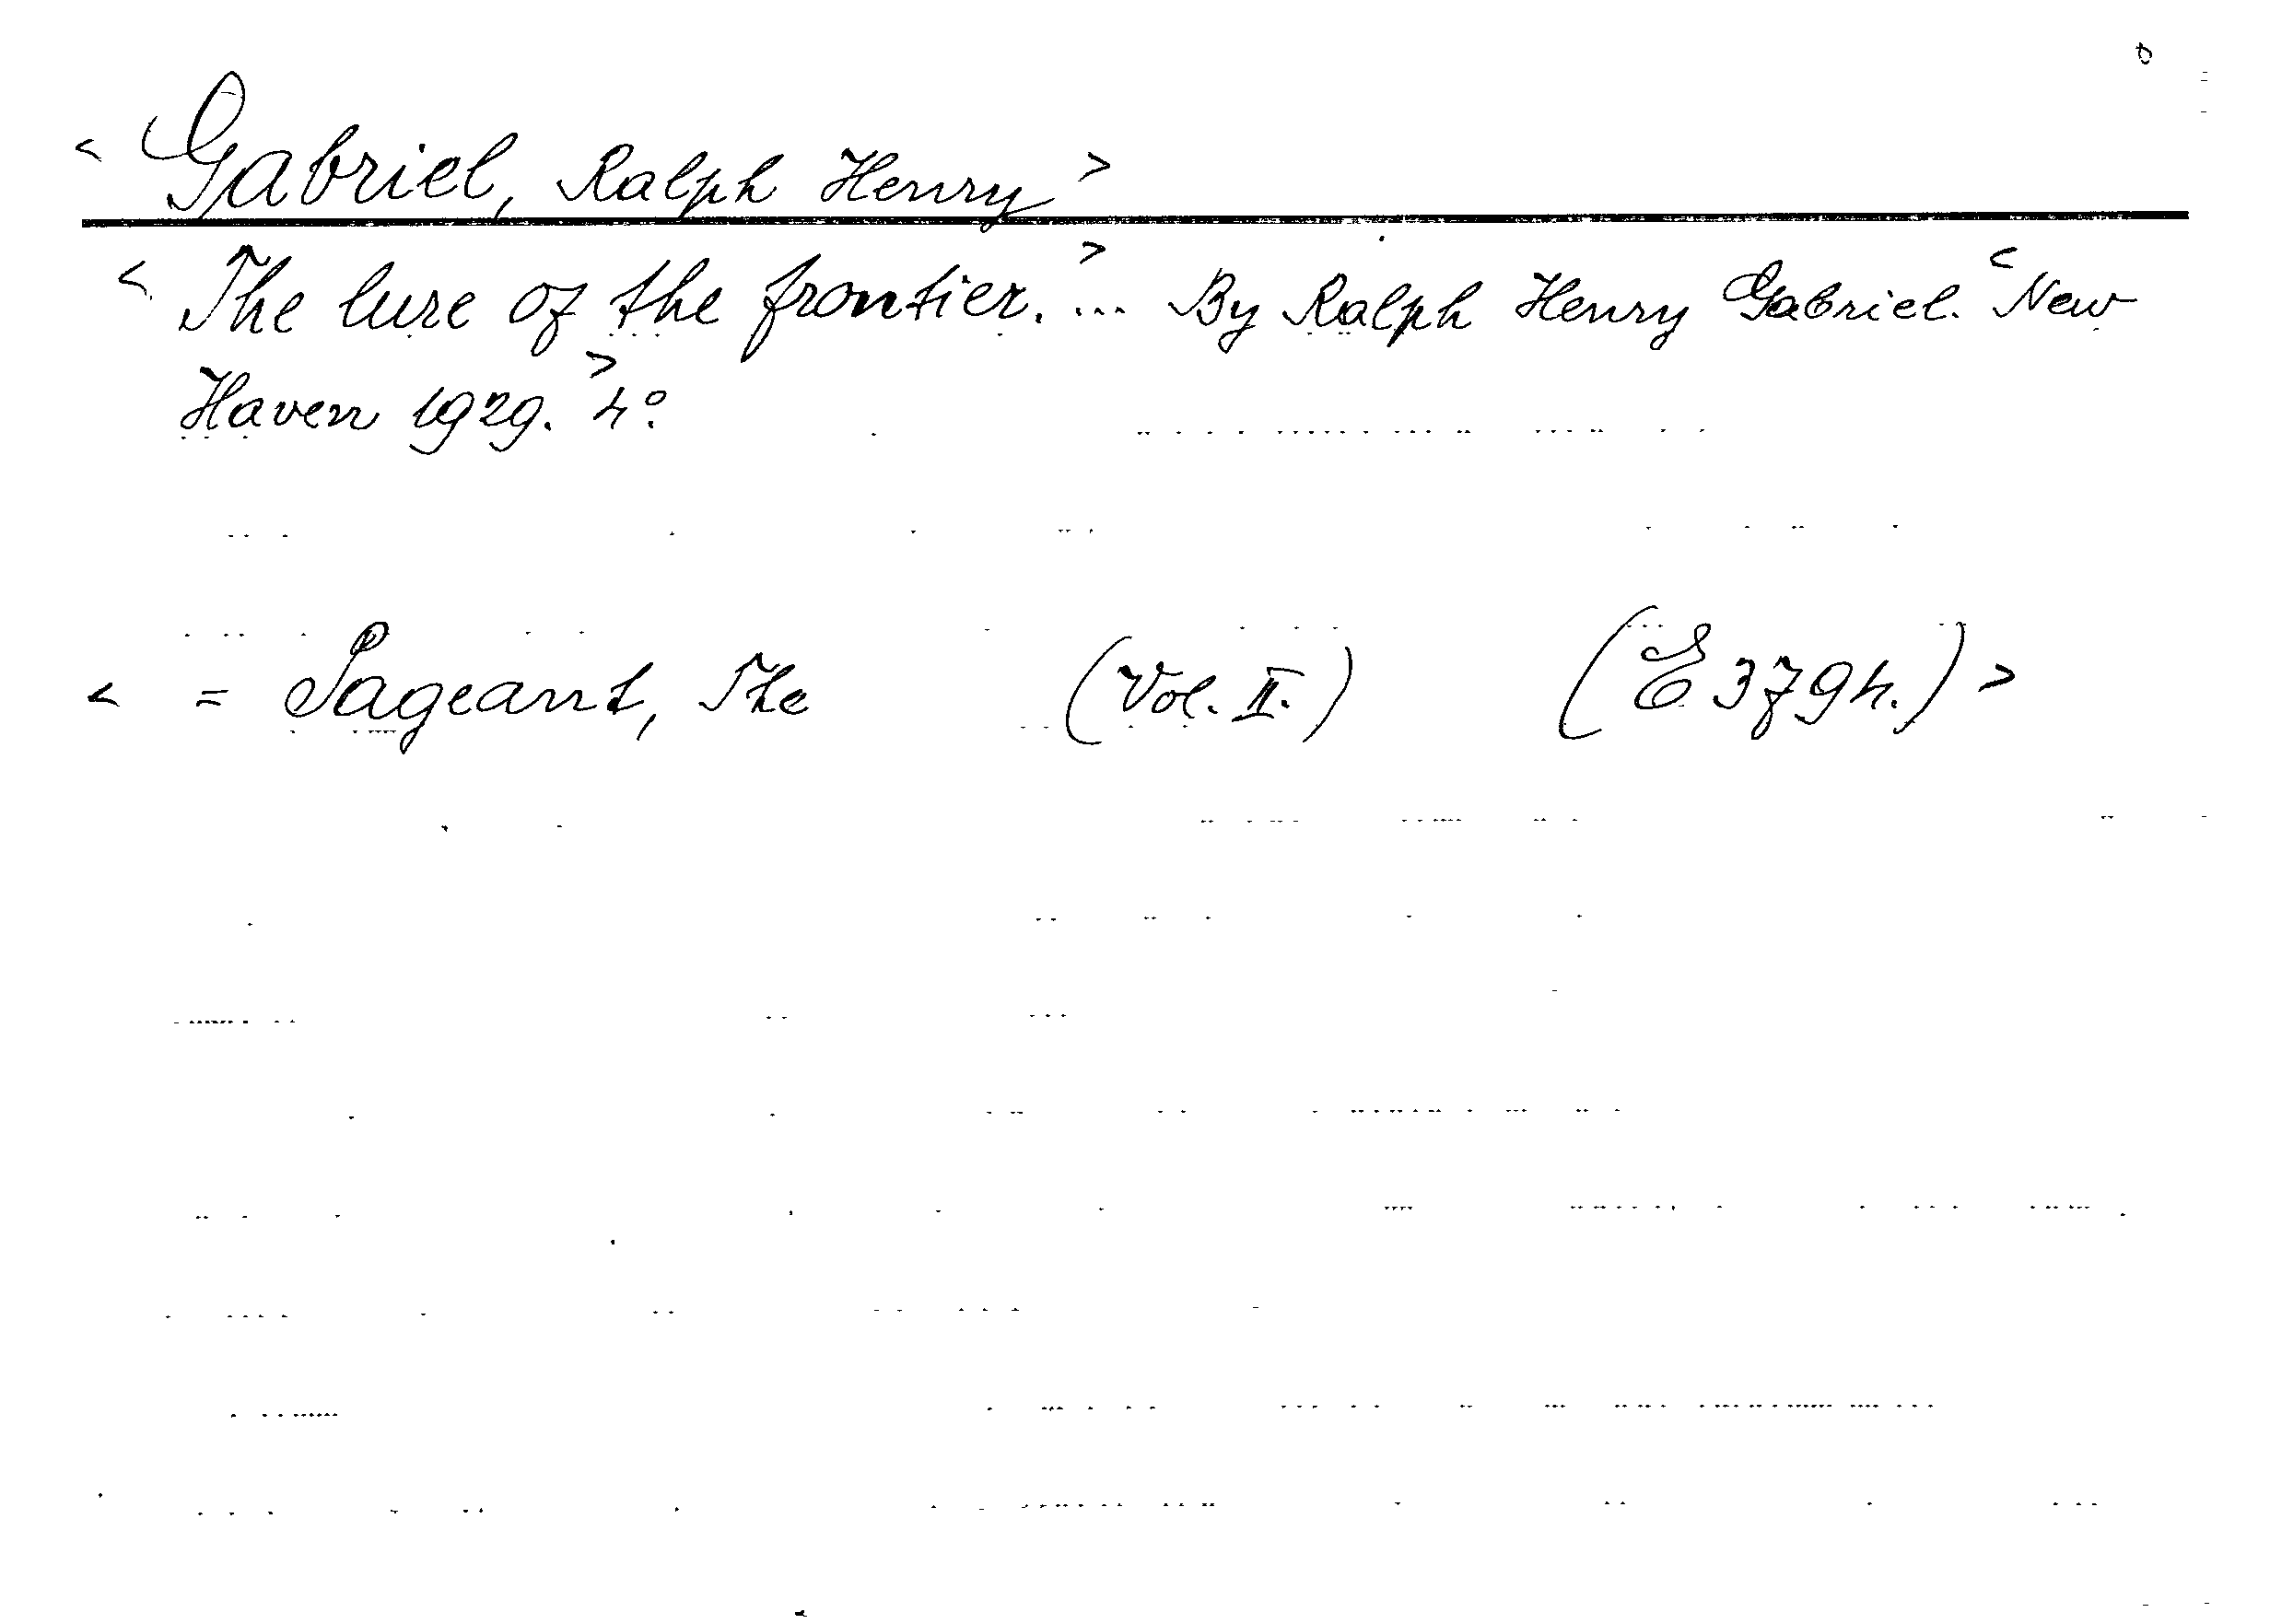 < Gabriel, Ralph Henry >
< The lure of the frontier. > ... By Ralph Henry Gabriel. < New
Haven 1929. > 4º
< = Pageant, The (Vol. II.) (E 3794.) >